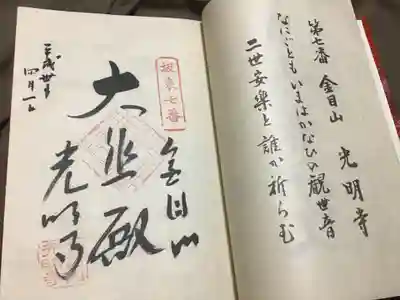 第七番 金目山 光明寺
なにごともいまはかなひの観世音
二世安楽と誰か祈らむ
坂東七番
金目山
大悲殿
光明寺
平成卅年
四月一日